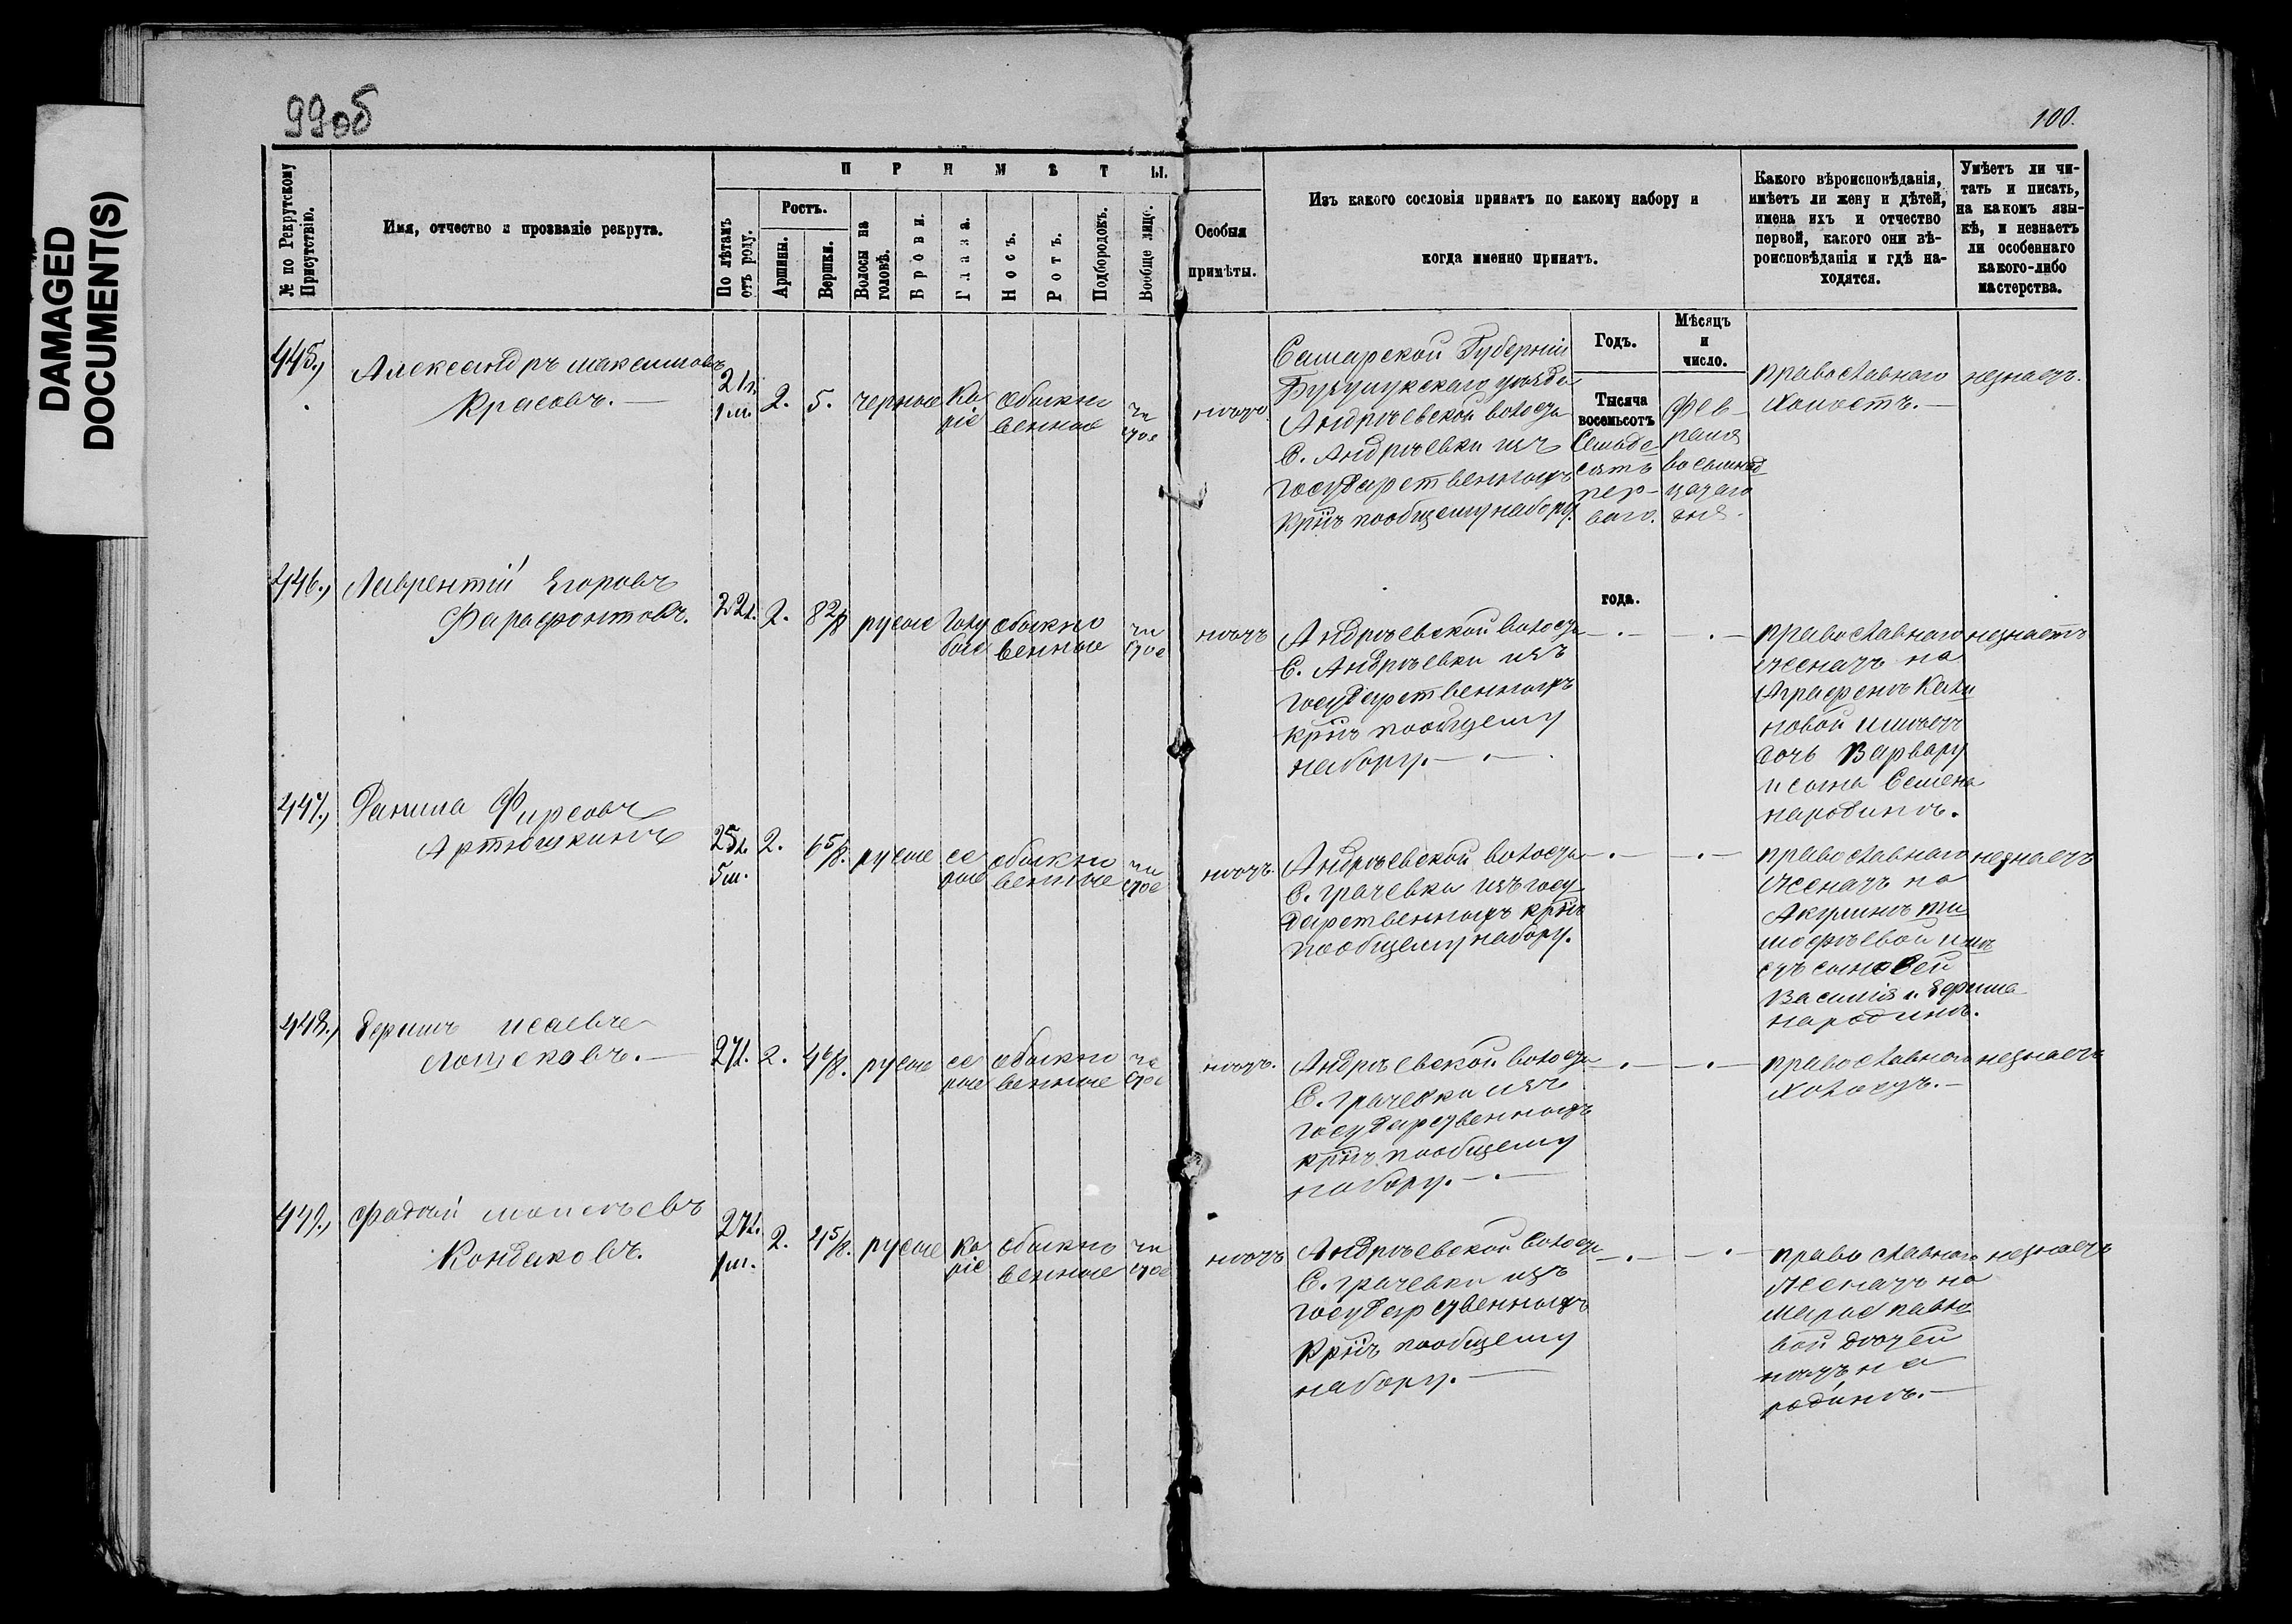 DAMAGED
DOCUMENT(S)
99об
100.
№ по Рекрутскому
Присутствію.
Имя, отчество и прозваніе рекрута.
ПРИМѢТЫ.
По лѣтамъ
отъ роду.
Ростъ.
Аршины.
Вершки.
Волосы на
головѣ.
Брови.
Глаза.
Носъ.
Ротъ.
Подбородокъ.
Вообще лицо.
Особыя
примѣты.
Изъ какого сословія принятъ по какому набору и
когда именно принятъ.
Какого вѣроисповѣданія,
имѣетъ ли жену и дѣтей,
имена ихъ и отчество
первой, какого они вѣ-
роисповѣданія и гдѣ на-
ходятся.
Умѣетъ ли чи-
тать и писать,
на какомъ язы-
кѣ, и незнаетъ
ли особеннаго
какого-либо
мастерства.
Годъ.
Мѣсяцъ
и
число.
445.,
Александръ Максимовъ
Красовъ.
21л.
1м.
2.
5.
черные
Ка
ріе
обыкно
венные
чи
стое
нѣтъ
Самарской Губерніи
Бузулукскаго уѣзда
Андрѣевской волости
С. Андрѣевки изъ
государственныхъ
Кр҃нъ пообщему набору.
Тысяча
восемьсотъ
Семьде-
сятъ
пер-
ваго.
года.
Фев-
раля
восемнад
цатаго
дня.
православнаго
холостъ.
незнаетъ.
446.,
Лаврентій Егоровъ
Фарафонтовъ.
22л.
2.
8 2/8
русые
Голу
бые
обыкно
венные
чи
стое
нѣтъ
Андрѣевской волости
С. Андрѣевки изъ
государственныхъ
кр҃нъ пообщему
набору.
православнаго
женатъ на
Аграфенѣ Кали
новой имѣетъ
дочь Варвару
и сына Семена
народинѣ.
незнаетъ
447.,
Данила Фирсовъ
Артюшкинъ
25л.
5м.
2.
6 5/8.
русые
се
рые
обыкно
венные
чи
стое
нѣтъ.
Андрѣевской волости
С. Грачевки изъ госу
дарственныхъ кр҃нъ
пообщему набору.
православнаго
Женатъ на
Акулинѣ Ти
мофѣевой имѣ
етъ сыновей
Василія и Ефима
народинѣ.
незнаетъ
448.,
Ефимъ Исаевъ
27л.
2.
4 6/8.
русые
се
рые
обыкно
венные
чи
стое
нѣтъ.
Андрѣевской волости
С. Грачевки изъ
государственныхъ
кр҃нъ пообщему
набору.
православнаго
холостъ.
незнаетъ
449.,
Фадѣй Моисѣевъ
Кондаковъ.
27л.
1м.
2.
4 5/8.
русые
Ка
ріе
обыкно
венные
чи
стое
нѣтъ
Андрѣевской волости
С. Грачевки изъ
государственныхъ
Кр҃нъ пообщему
набору.
православнаго
Женатъ на
Марье Павло
вой дѣтей
нѣтъ на
родинѣ.
незнаетъ